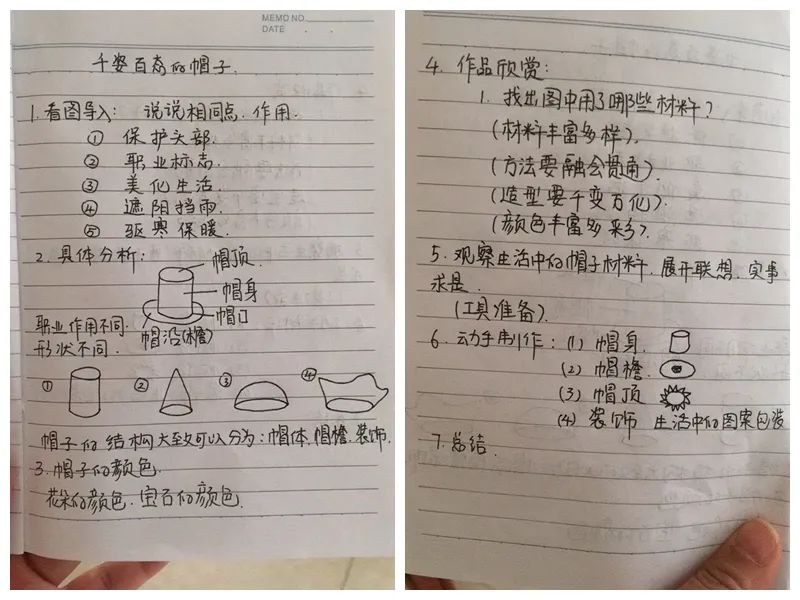 MEMO NO.
DATE
千姿百态的帽子.
1. 看图导入: 说说相同点. 作用.
① 保护头部.
② 职业标志.
③ 美化生活.
④ 遮阳挡雨.
⑤ 驱寒保暖.
2. 具体分析:
帽顶.
帽身
帽口
帽沿(檐)
职业作用不同.
形状不同.
① ② ③ ④
帽子的结构大致可以分为: 帽体. 帽檐. 装饰.
3. 帽子的颜色.
花朵的颜色. 宝石的颜色.
4. 作品欣赏:
1. 找出图中用了哪些材料?
(材料丰富多样).
(方法要融会贯通).
(造型要千变万化).
(颜色丰富多彩).
5. 观察生活中的帽子材料. 展开联想. 实事
求是.
(工具准备).
6. 动手制作: (1) 帽身.
(2) 帽檐.
(3) 帽顶
(4) 装饰 生活中的图案包装
7. 总结.